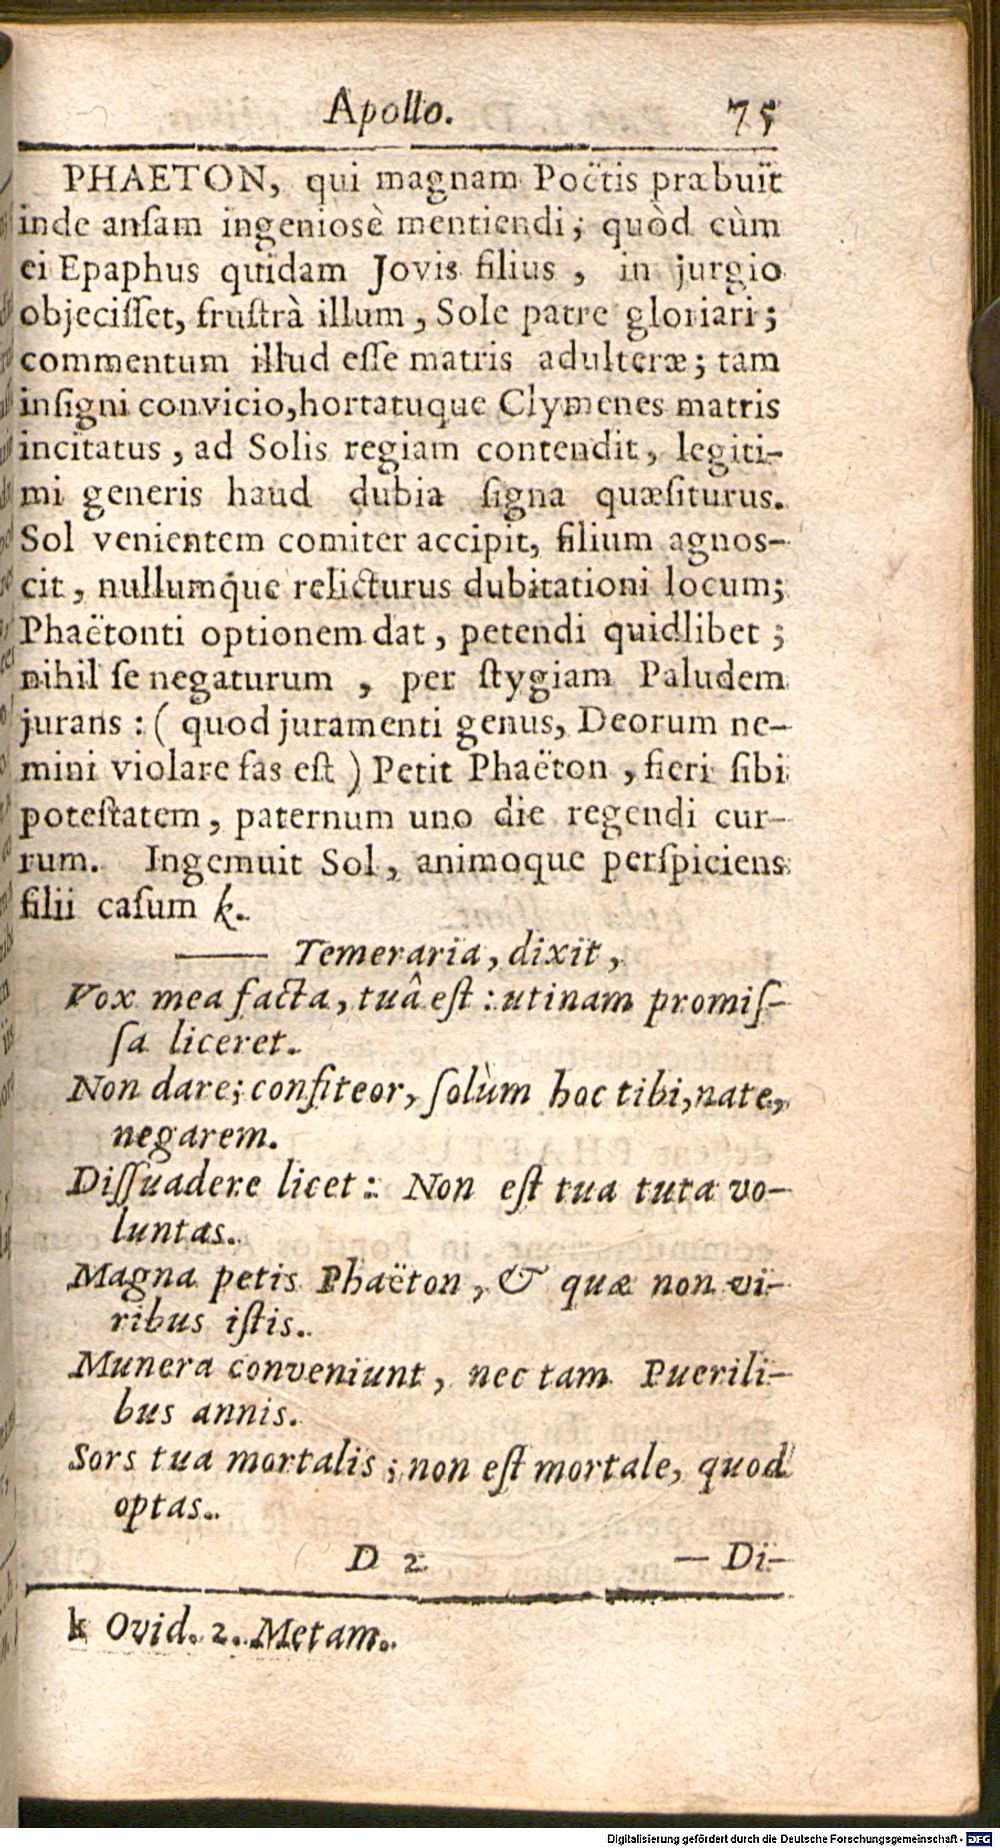 Apollo. 75
PHAETON, qui magnam Poëtis præbuit
inde anſam ingeniosè mentiendi; quòd cùm
ei Epaphus quidam Jovis filius, in jurgio
objeciſſet, fruſtrà illum, Sole patre gloriari;
commentum illud eſſe matris adulteræ; tam
inſigni convicio, hortatuque Clymenes matris
incitatus, ad Solis regiam contendit, legiti-
mi generis haud dubia ſigna quæſiturus.
Sol venientem comiter accipit, filium agnos-
cit, nullumque relicturus dubitationi locum;
Phaëtonti optionem dat, petendi quidlibet;
nihil ſe negaturum, per ſtygiam Paludem
jurans: (quod juramenti genus, Deorum ne-
mini violare fas eſt) Petit Phaëton, fieri ſibi
poteſtatem, paternum uno die regendi cur-
rum. Ingemuit Sol, animoque perſpiciens
filii caſum k.
—— Temeraria, dixit,
Vox mea facta, tuâ eſt: utinam promiſ-
ſa liceret.
Non dare; confiteor, ſolùm hoc tibi, nate,
negarem.
Diſſuadere licet: Non eſt tua tuta vo-
luntas.
Magna petis Phaëton, & quæ non vi-
ribus iſtis.
Munera conveniunt, nec tam Puerili-
bus annis.
Sors tua mortalis; non eſt mortale, quod
optas.
D 2 — Di-
k Ovid. 2. Metam.
Digitalisierung gefördert durch die Deutsche Forschungsgemeinschaft - DFG